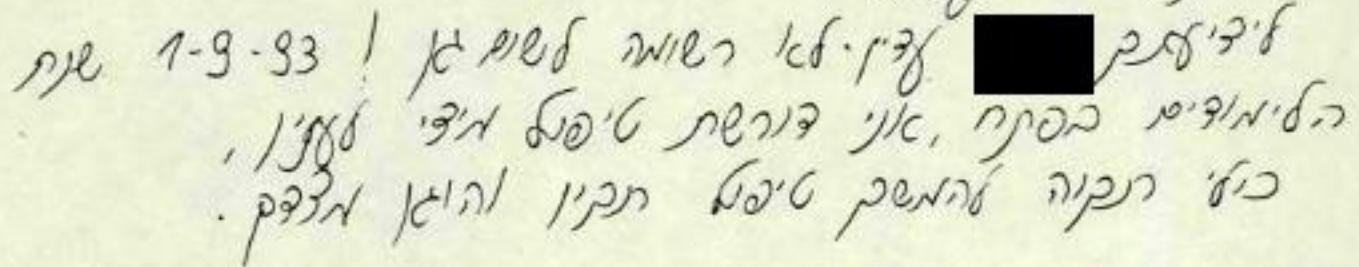 לידיעתכם עדיין לא רשומה לשום גן! 1-9-93 שנת
הלימודים בפתח, אני דורשת טיפול מידי לענין,
כולי תקוה להמשך טיפול תקין והוגן מצדכם.